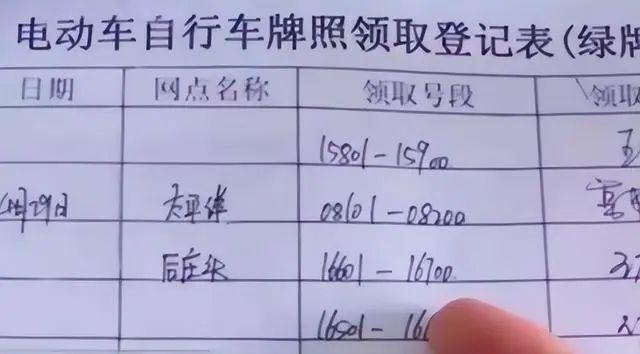 电动车自行车牌照领取登记表(绿牌
日期 网点名称 领取号段 领取
15801-15900
月29日 太平洋 08101-08200
后庄 16601-16700
16501-16